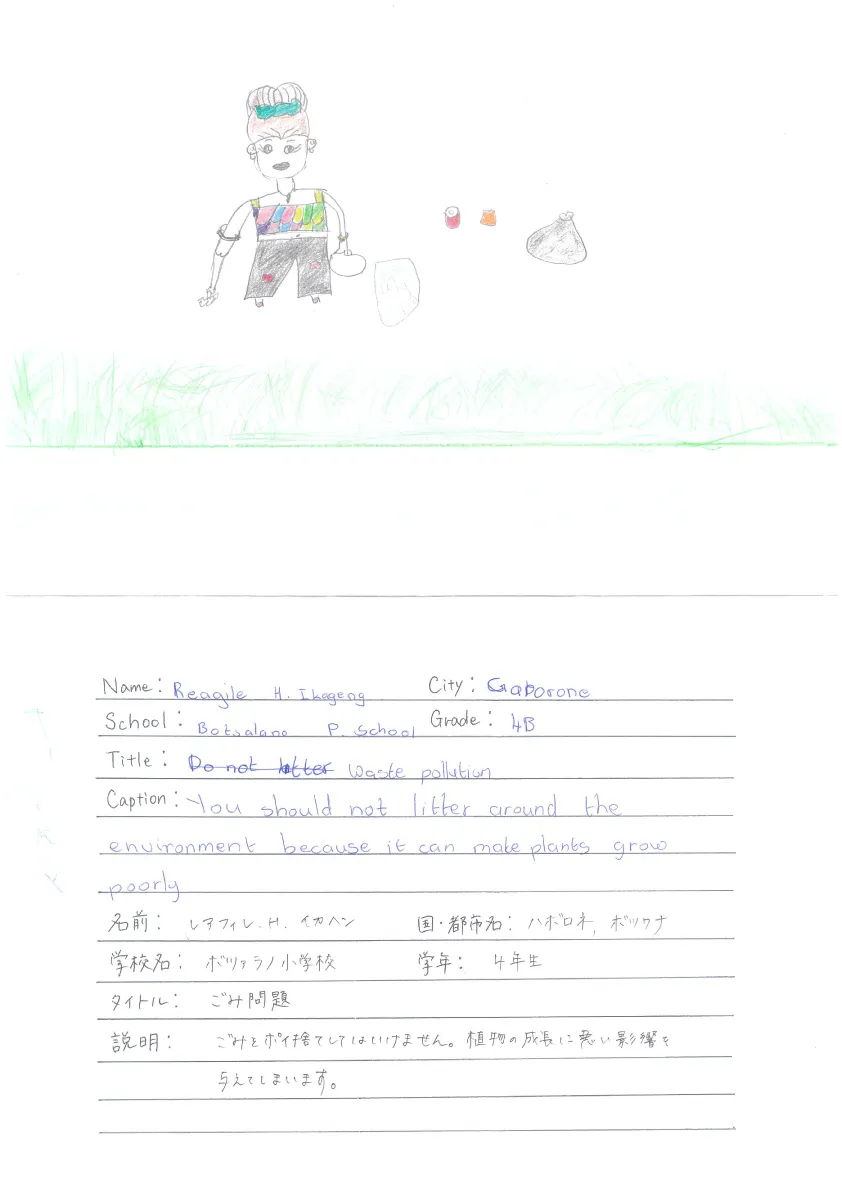 Name: Reagile H. Ikageng City: Gaborone
School: Botsalano P. School Grade: 4B
Title: Do not litter Waste pollution
Caption: You should not litter around the
environment because it can make plants grow
poorly
名前: レアフィレ.H. イカヘン 国・都市名: ハボロネ, ボツワナ
学校名: ボツァラノ小学校 学年: 4年生
タイトル: ごみ問題
説明: ごみをポイ捨てしてはいけません。植物の成長に悪い影響を
与えてしまいます。